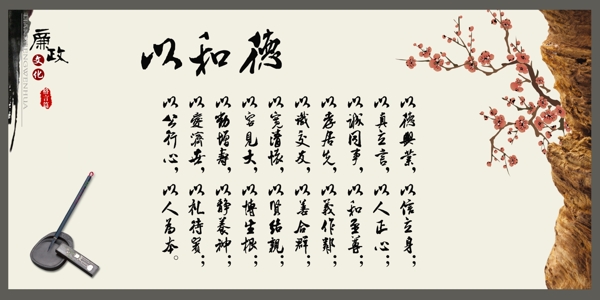 廉政
文化
以和德
以德興業,以信立身;
以真立言,以人正心;
以誠同事,以和至善;
以孝居先,以義作鄰;
以識交友,以善合群;
以寬清懷,以賢結親;
以容見大,以博生根;
以勤增壽,以靜養神;
以愛濟世,以礼待賓;
以公行心,以人為本。